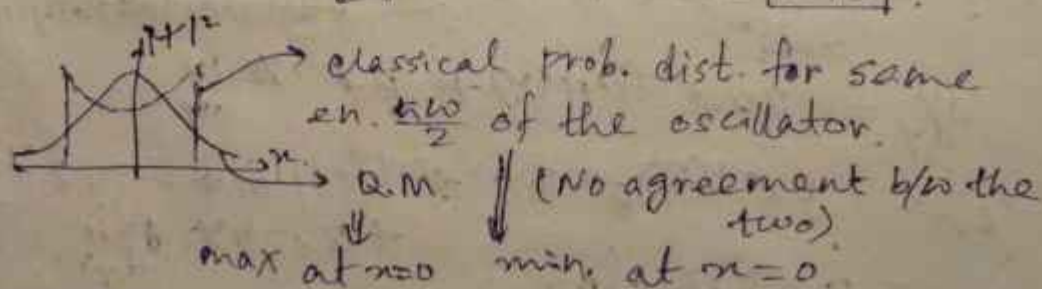 |ψ|²
classical prob. dist. for same
en. ħω/2 of the oscillator.
x
Q.M. ⇓ (No agreement b/w the
⇓ two)
max at x=0 min. at x=0.